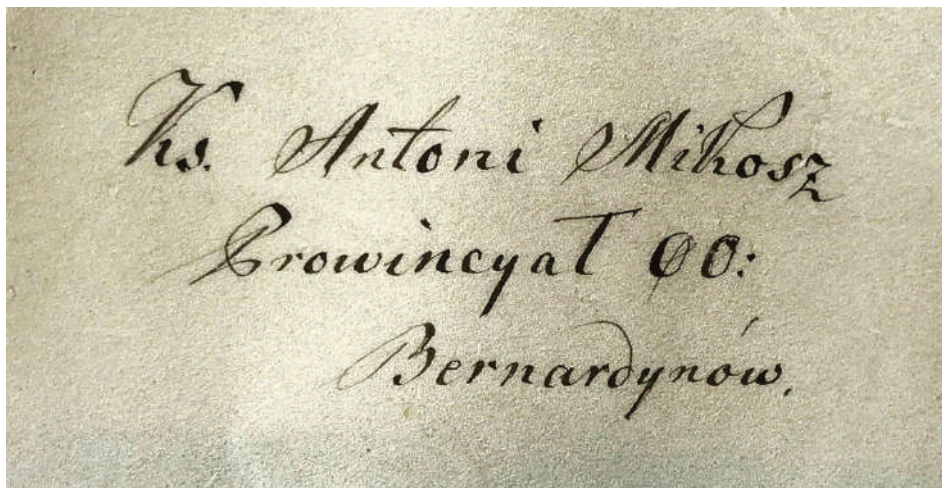 Ks. Antoni Mikosz
Prowincyał OO:
Bernardynów.